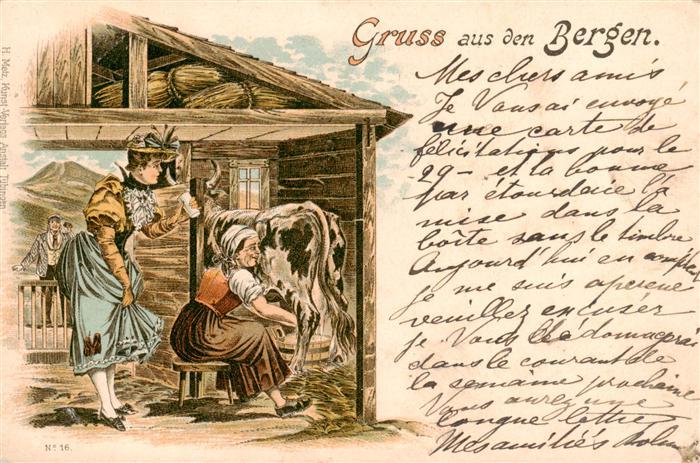 Gruss aus den Bergen.
Mes chers amis
Je Vous ai envoyé
une carte de
félicitations pour le
29 – et la bonne
par étourderie l'a
mise dans la
boîte sans le timbre
Aujourd'hui en
je me suis aperçue
veuillez excuser
je Vous
dans le courant de
la semaine prochaine
Vous aurez une
longue lettre
Mes amitiés
H. Metz, Kunst-Verlags-Anstalt, Tübingen
No 16.